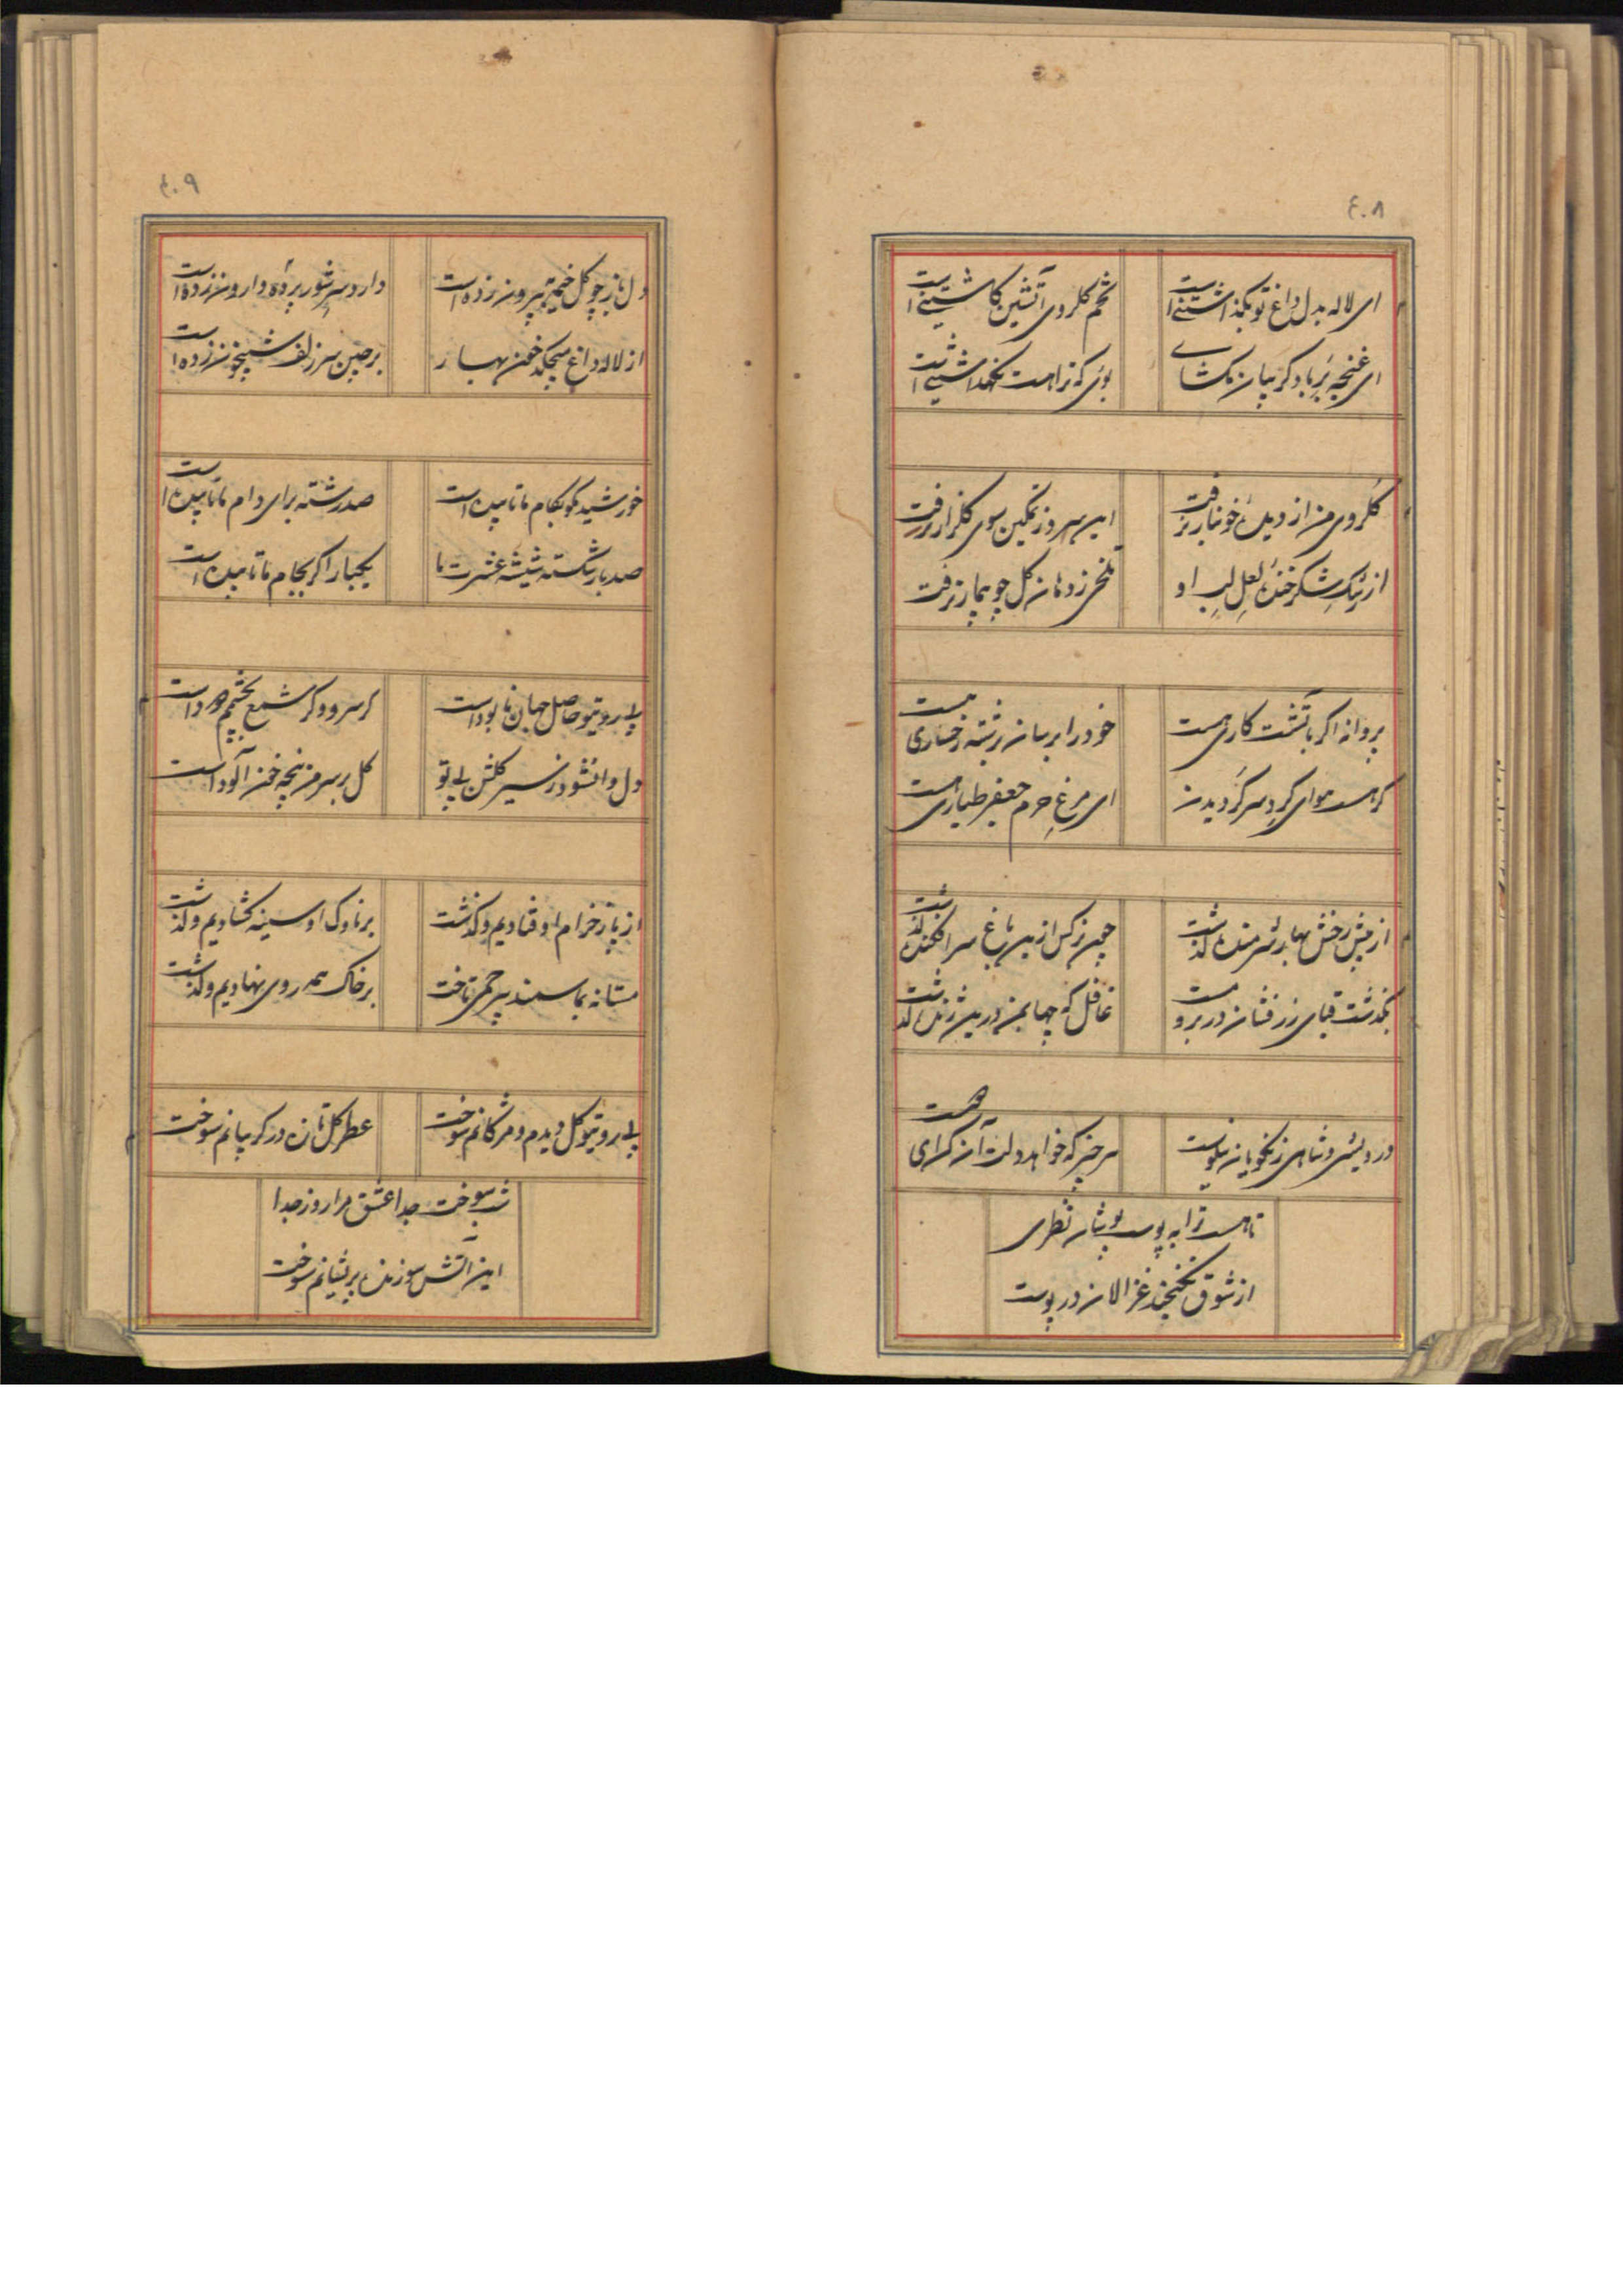 ۴۰۸
ای لاله بدل داغ تو نگذاشتنی است
تخم گلروی آتشین کاشتنی است
ای غنچه بر باد گریبان مگشای
بوی که تراست نگهداشتنی است
گلروی من از دیده خونبار برفت
این سرو ز تمکین سوی گلزار نرفت
از رشک شکرخنده لعل لب او
تلخی ز دهان گل چو بیمار نرفت
پروانه اگر بآتشت کاری هست
خود را برسان رشته رخساری هست
گر هست هوای گرد سر گردیدن
ای مرغ حرم جعفر طیاری هست
از پیش رخش بهار شرمنده گذشت
چون نرگس ازین باغ سرافکنده گذشت
بگذشت قبای زرفشان در بر و مست
غافل که چها بمن درین ژنده گذشت
درویشی و شاهی ز نکویان نیکوست
هر چیز که خواهد دلت آن گرای هست
تا هست ترا به پوست پوشان نظری
از شوق نگنجند غزالان در پوست
۴۰۹
دل باز چو گل خیمه بیرون زده است
دارد سر شور پرده وارون زده است
از لاله داغ میچکد خون بهار
بر چین سر زلف شبیخون زده است
خورشید کو بکام ما تابیده است
صد رشته برای دام ما تابیده است
صد بار شکسته شیشه عشرت ما
یکبار اگر بجام ما تابیده است
بی روی تو حاصل جهان نابود است
گر سرو و گر شمع بچشمم دود است
دل وا نشود ز سیر گلشن بی تو
گل بر سر من پنجه خون آلود است
از پا ز خرام او فتادیم و گذشت
بر ناوک او سینه گشادیم و گذشت
مستانه بما سمند بیرحمی تاخت
بر خاک همه روی نهادیم و گذشت
بی روی تو گل دیدم و مژگانم سوخت
عطر گل تازه در گریبانم سوخت
شب سوخت جدا عشق مرا روز جدا
این آتش سوزنده پریشانم سوخت